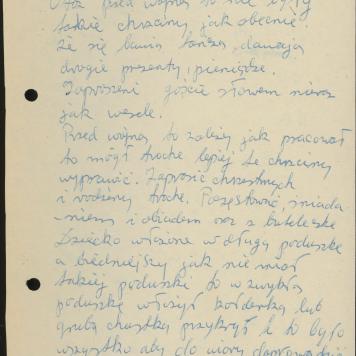 Otóż przed wojną to nie były
takie chrzciny jak obecnie.
Że się bawią tańczą, dawają
drogie prezenty, pieniądze.
Zaproszeni goście słowem nieraz
jak wesele.
Przed wojną to zależy jak pracował
to mógł trochę lepiej te chrzciny
wyprawić. Zaprosić chrzestnych
i rodziny trochę. Poczęstować, śniada
-niem i obiadem oraz z buteleczkę
Dziecko włożone w długą poduszkę
a biedniejszy jak nie miał
takiej poduszki to w zwykłą
poduszkę włożył kołderką lub
grubą chustką przykrył i to było
wszystko aby do wiary doprowadzić